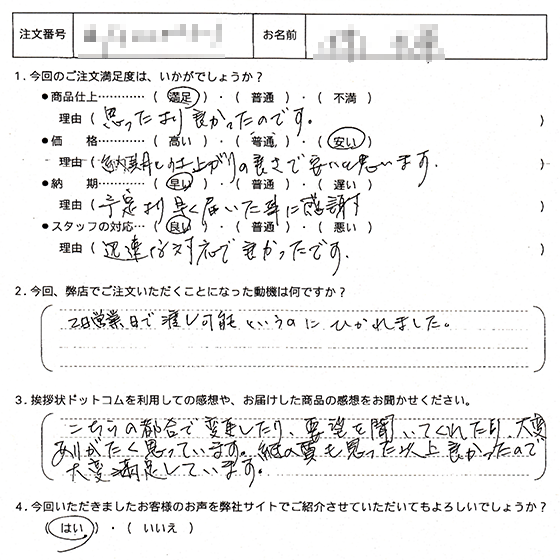 注文番号 お名前
1.今回のご注文満足度は、いかがでしょうか?
●商品仕上………… ( 満足 )・( 普通 )・( 不満 )
理由 ( 思ったより良かったのです。 )
●価 格………… ( 高い )・( 普通 )・( 安い )
理由 ( 納期と仕上がりの良さで安いと思います. )
●納 期………… ( 早い )・( 普通 )・( 遅い )
理由 ( 予定より早く届いた事に感謝す )
●スタッフの対応… ( 良い )・( 普通 )・( 悪い )
理由 ( 迅速な対応で良かったです. )
2.今回、弊店でご注文いただくことになった動機は何ですか?
2日営業日で渡し可能というのにひかれました。
3.挨拶状ドットコムを利用しての感想や、お届けした商品の感想をお聞かせください。
こちらの都合で変更したり、要望を聞いてくれたり、大変
ありがたく思っています。紙の質も思った以上良かったので
大変満足しています。
4.今回いただきましたお客様のお声を弊社サイトでご紹介させていただいてもよろしいでしょうか?
( はい )・( いいえ )